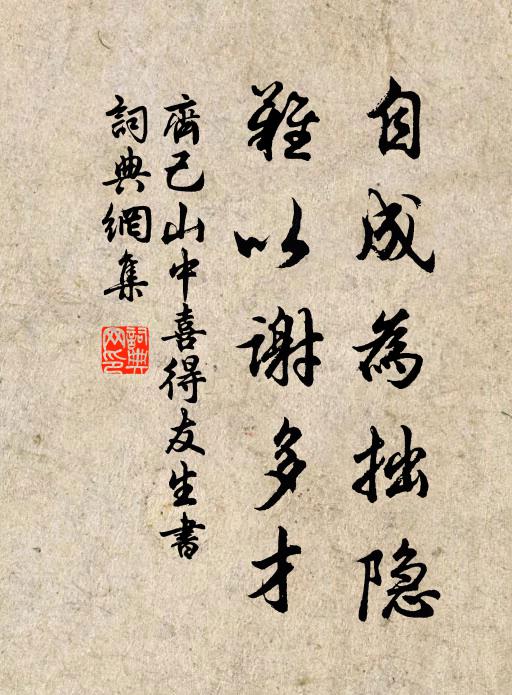 自成為拙隐
難以謝多才
齊己山中喜得友生書
詞典網集
詞典
网印